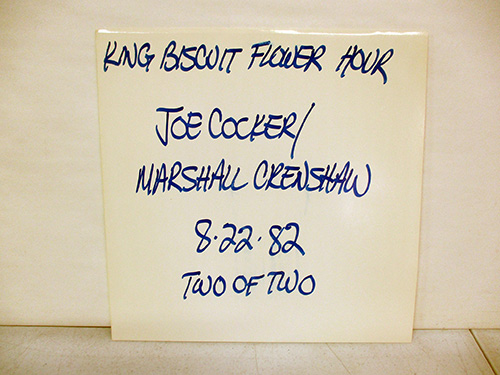 KING BISCUIT FLOWER HOUR
JOE COCKER/
MARSHALL CRENSHAW
8.22.82
TWO OF TWO